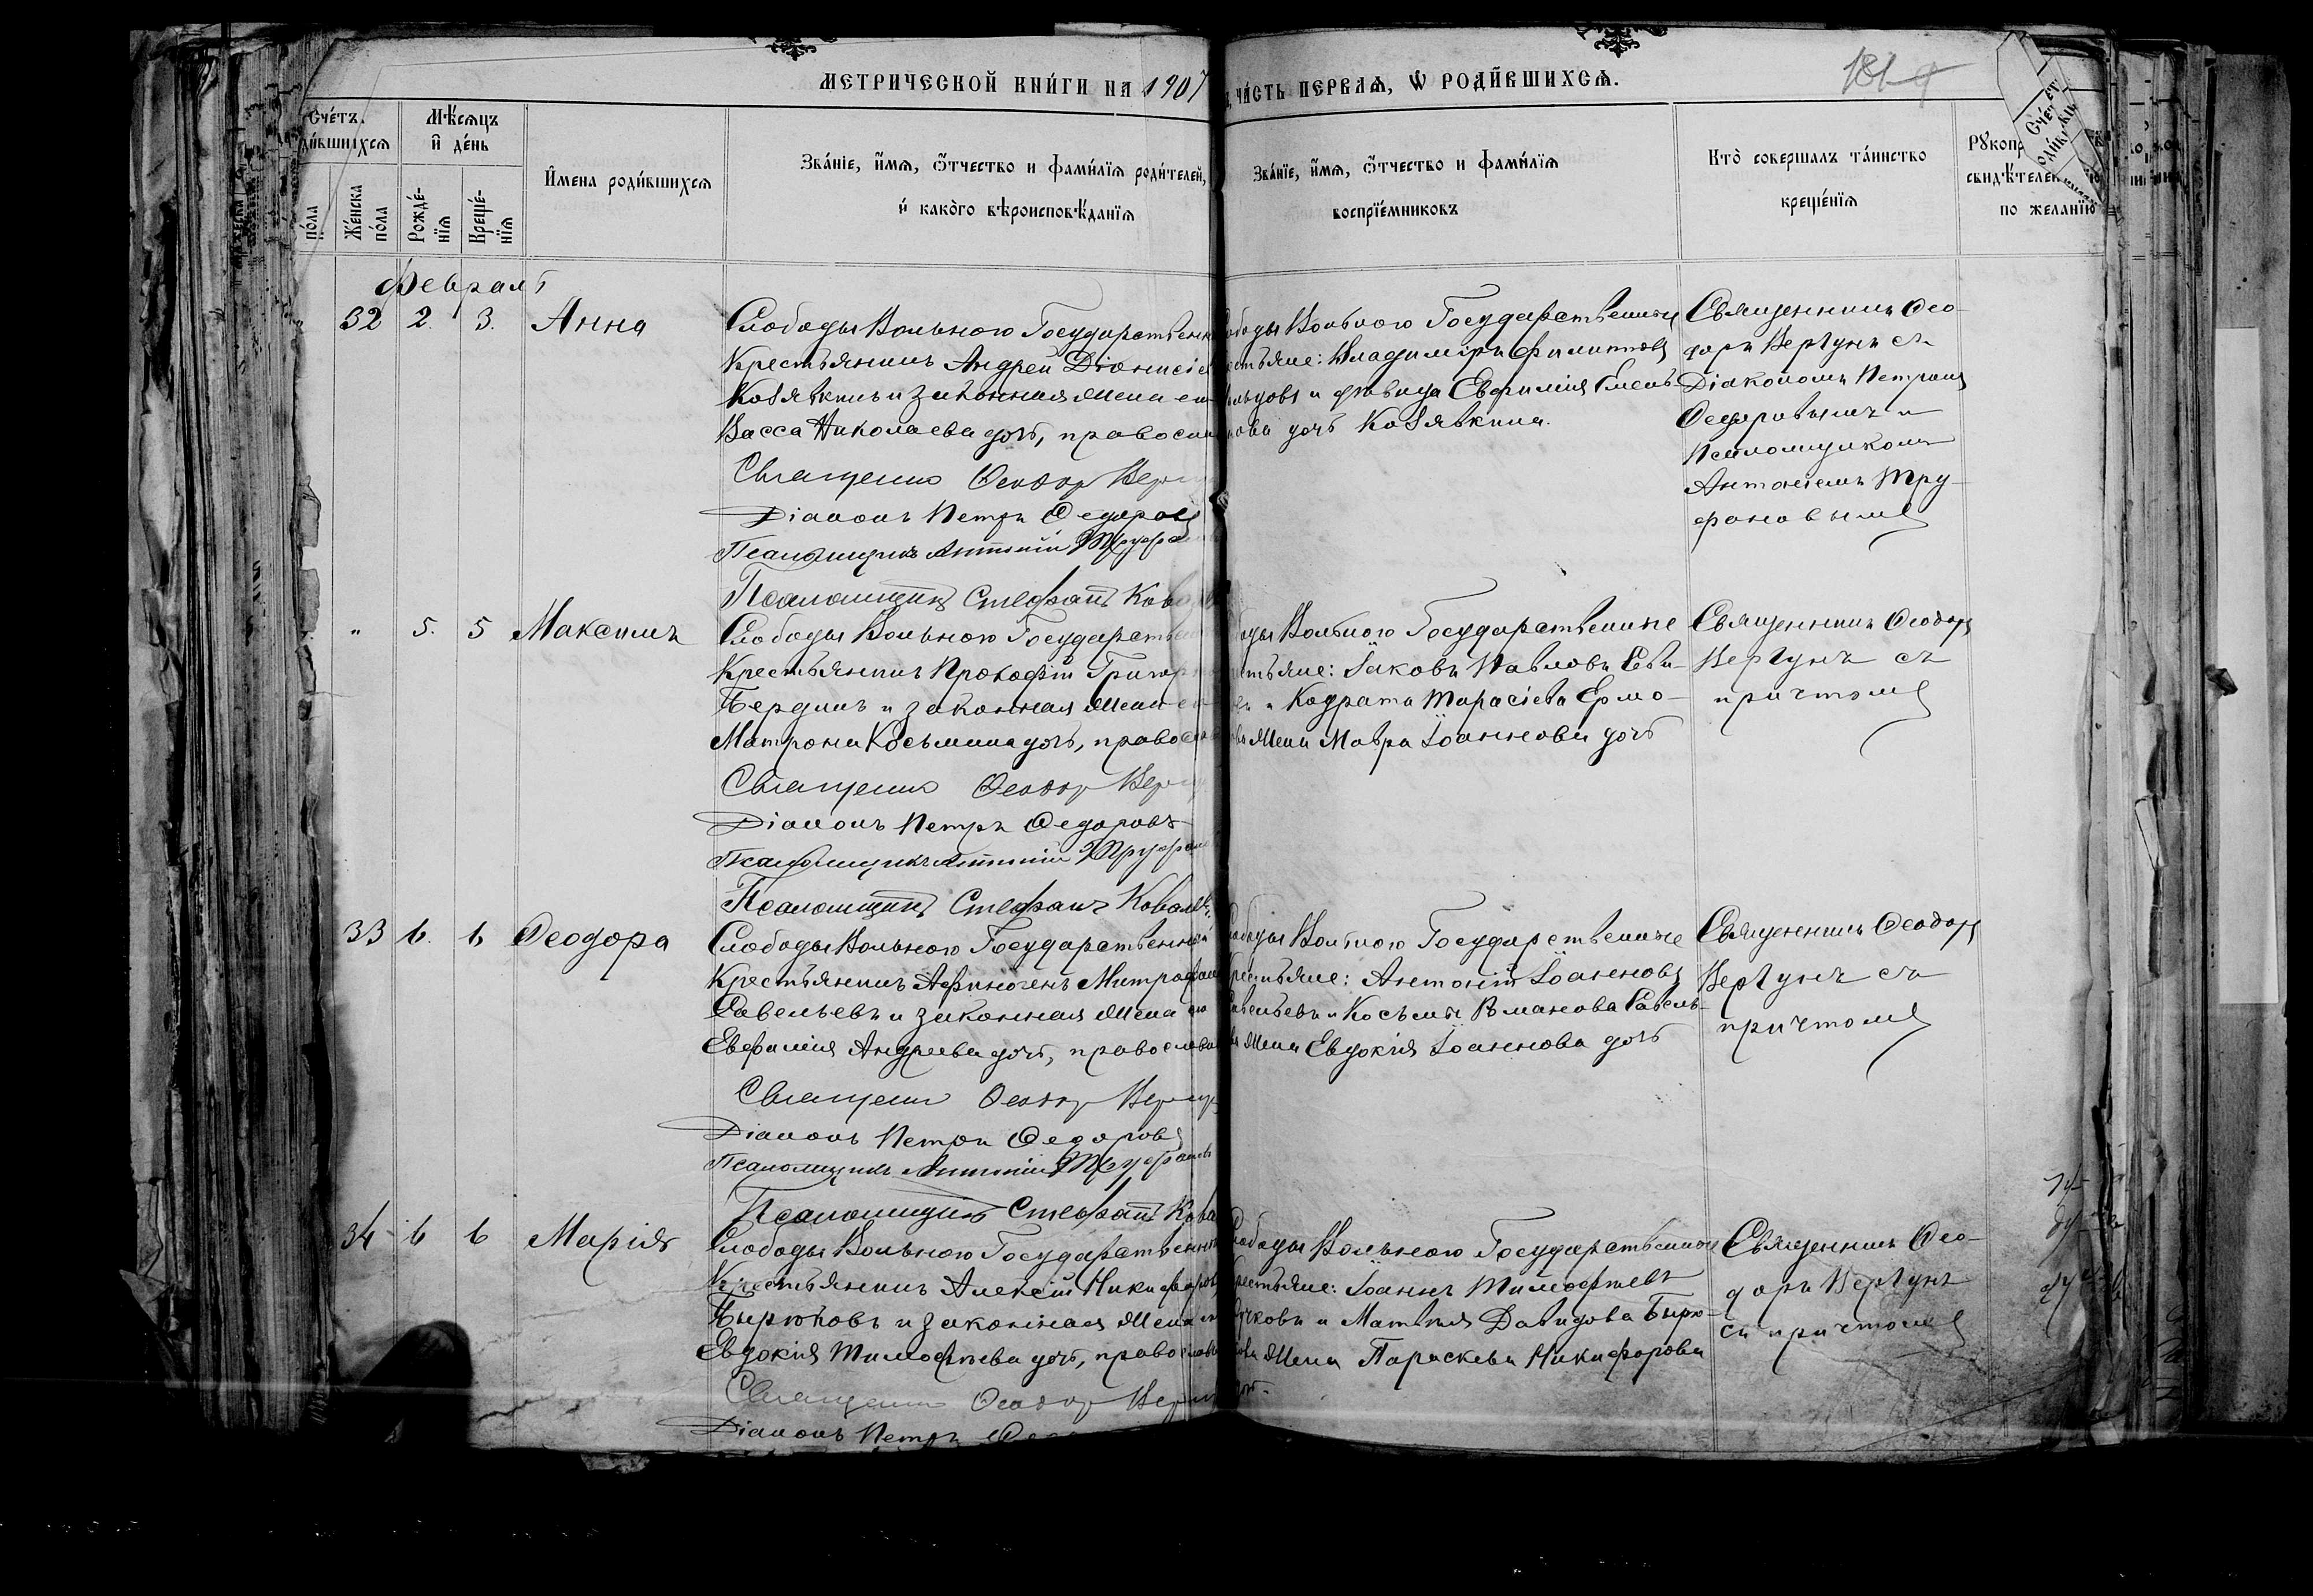 МЕТРИЧЕСКОЙ КНИ́ГИ НА 1907
ЧА́СТЬ ПЕРВАѦ, Ѡ РОДИ́ВШИХСѦ.
181
Сче́тъ
ди́вшихсѧ
Мѣ́сѧцъ и де́нь
по́ла
Же́нска по́ла
Рожде́нїѧ
Креще́нїѧ
И́мена роди́вшихсѧ
Зва́нїе, и́мѧ, ѻ́тчество и фами́лїѧ роди́телей,
и како́го вѣроисповѣ́данїѧ
Зва́нїе, и́мѧ, ѻ́тчество и фами́лїѧ
воспрїе́мниковъ
Кто̀ совершалъ та́инство
креще́нїѧ
по желанїю
Февраль
32 2. 3. Анна
Слободы Вольного Государственн
Крестьянинъ Андрей Діонисіев
Козявкинъ и законная жена ег
Васса Николаева дочь, православ
Священник Феодор Верг
Діаконъ Петръ Федоровъ
Псаломщикъ Антоній Труфан
Псаломщикъ Стефанъ Ков
ободы Вольного Государственные
естьяне: Владиміръ Филипповъ
льцовъ и девица Евфимія Симео-
нова дочь Козявкина.
Священникъ Фео-
доръ Вергунъ съ
Діакономъ Петромъ
Федоровымъ и
Псаломщикомъ
Антоніемъ Тру-
фановымъ
" 5. 5 Максимъ
Слободы Вольного Государствен
Крестьянинъ Прокофій Григор
Бердинъ и законная жена ег
Матрона Косьмина дочь, правосл
Священник Феодор Верг
Діаконъ Петръ Федоровъ
Псаломщикъ Антоній Труфан
Псаломщикъ Стефанъ Ковалев
оды Вольного Государственные
стьяне: Іаковъ Павловъ
и Кодрата Тарасіева Ермо-
жена Мавра Іоаннова дочь
Священникъ Феодоръ
Вергунъ съ
причтомъ
33 6. 6 Феодора
Слободы Вольного Государственный
Крестьянинъ Афиногенъ Митрофан
Савельевъ и законная жена его
Евфимія Андреева дочь, православ
Священник Феодор Вергу
Діаконъ Петръ Федоровъ
Псаломщикъ Антоній Труфановъ
Псаломщикъ Стефанъ Кова
лободы Вольного Государственные
рестьяне: Антоній Іоанновъ
авельевъ и Косьмы Романова Савель-
жена Евдокія Іоаннова дочь
Священникъ Феодоръ
Вергунъ съ
причтомъ
34 6 6 Марія
Слободы Вольного Государственн
Крестьянинъ Алексій Никифоров
Бирюковъ и законная жена его
Евдокія Тимофеева дочь, православ
Священник Феодор Верг
Діаконъ Петръ Фед
лободы Вольного Государственные
рестьяне: Іоаннъ Тимофеевъ
чковъ и Матвея Давидова Бирю-
кова жена Параскева Никифорова
дочь.
Священникъ Фео-
доръ Вергунъ
съ причтомъ